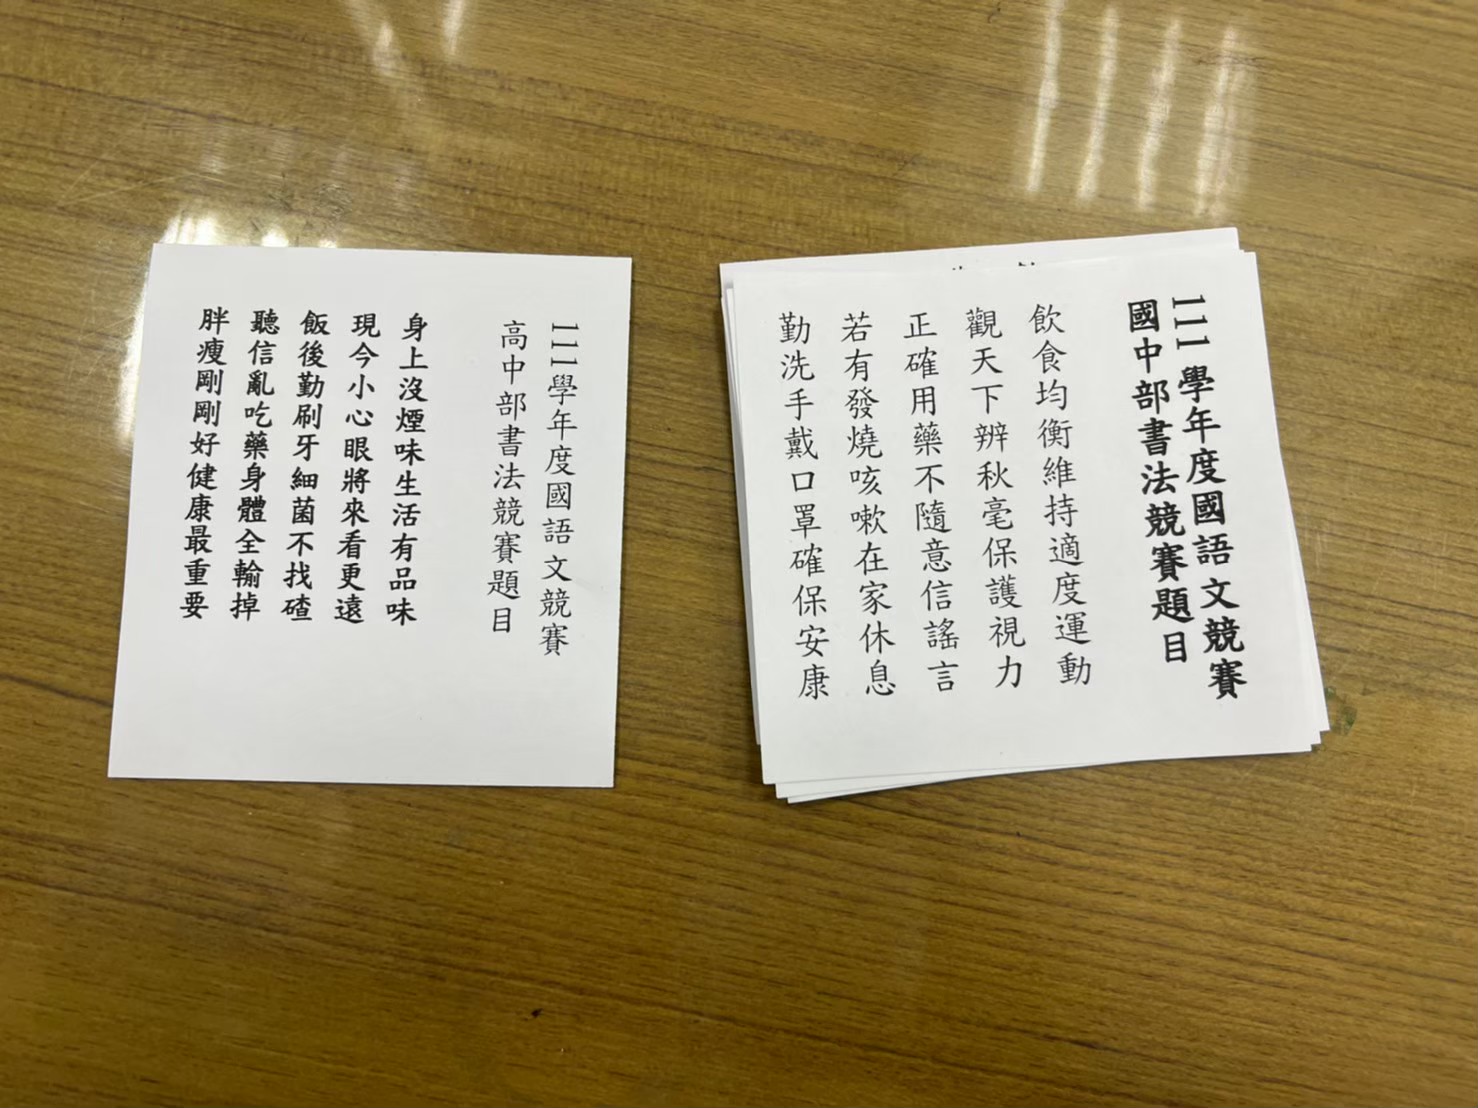 111學年度國語文競賽
高中部書法競賽題目
身上沒煙味生活有品味
現今小心眼將來看更遠
飯後勤刷牙細菌不找碴
聽信亂吃藥身體全輸掉
胖瘦剛剛好健康最重要
111學年度國語文競賽
國中部書法競賽題目
飲食均衡維持適度運動
觀天下辨秋毫保護視力
正確用藥不隨意信謠言
若有發燒咳嗽在家休息
勤洗手戴口罩確保安康